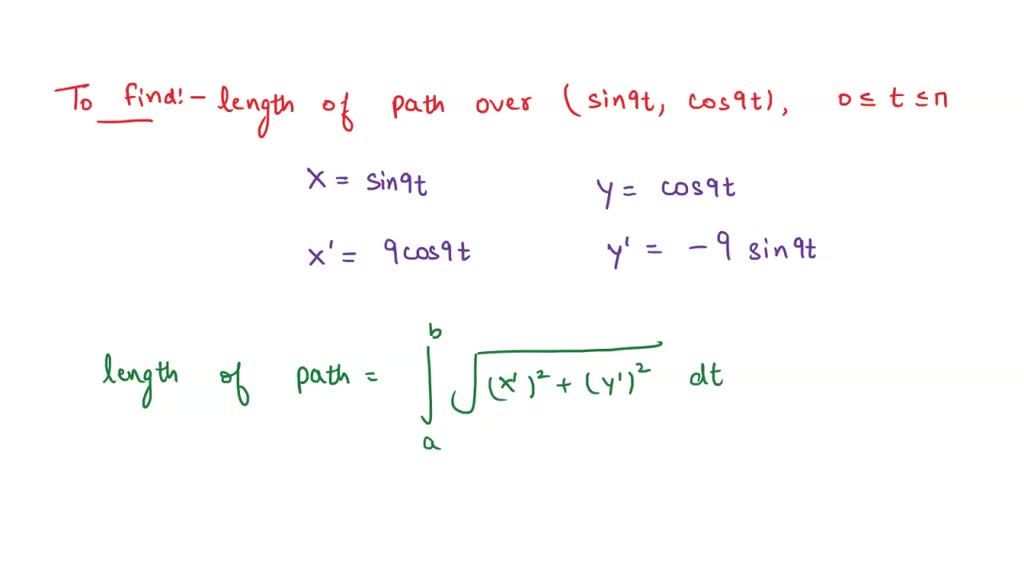 To find:- length of path over (sin9t, cos9t), 0 ≤ t ≤ π
x = sin9t y = cos9t
x' = 9cos9t y' = -9 sin9t
length of path = ∫_a^b √((x')² + (y')²) dt